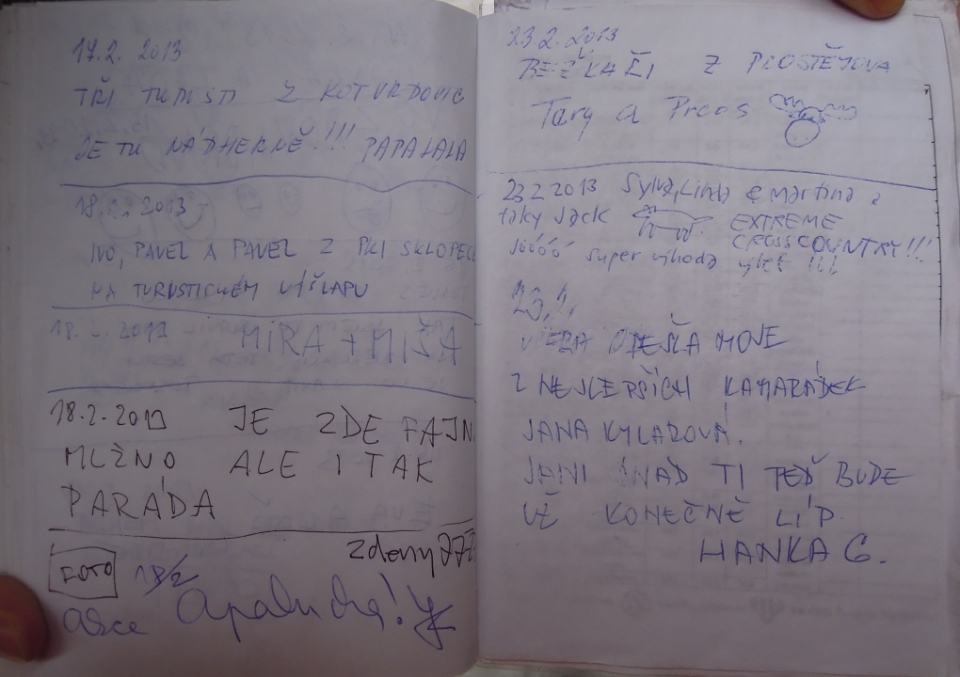 17.2. 2013
TŘI TURISTI Z KOTVRDOVIC
JE TU NÁDHERNĚ!!! PAPALALA
18.2. 2013
IVO, PAVEL A PAVEL Z
NA TURISTICKÉM VÝŠLAPU
18.2. 2013 MIRA + MIŠA
18.2.2013 JE ZDE FAJN
MLŽNO ALE I TAK
PARÁDA
zdeny777
FOTO 18/2
Apalucha!
23.2.2013
BĚŽKAŽI Z PROSTĚJOVA
Tary a Prcos
23.2 2013 Sylva, Linda & Martina a
taky Jack EXTREME
CROSSCOUNTRY!!!
jóóóó super výlet !!!
VČERA ODEŠLA MOJE
Z NEJLEPŠÍCH KAMARÁDEK
JANA KYLAROVÁ.
JANI SNAD TI TEĎ BUDE
UŽ KONEČNĚ LÍP.
HANKA G.